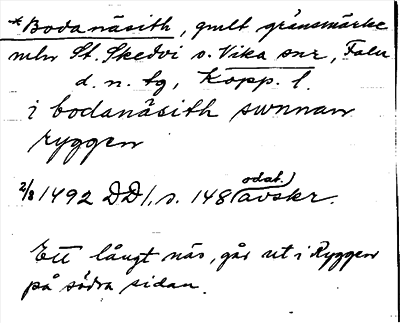 *Bodanäsith, gmlt gränsmärke
mln St. Skedvi o. Vika snr, Falu
d. n. tg, Kopp. l.
i bodanäsith swnnan
ryggen
2/8 1492 DD1, s. 148 (odat.) avskr.
Ett långt näs, går ut i Ryggen
på södra sidan.